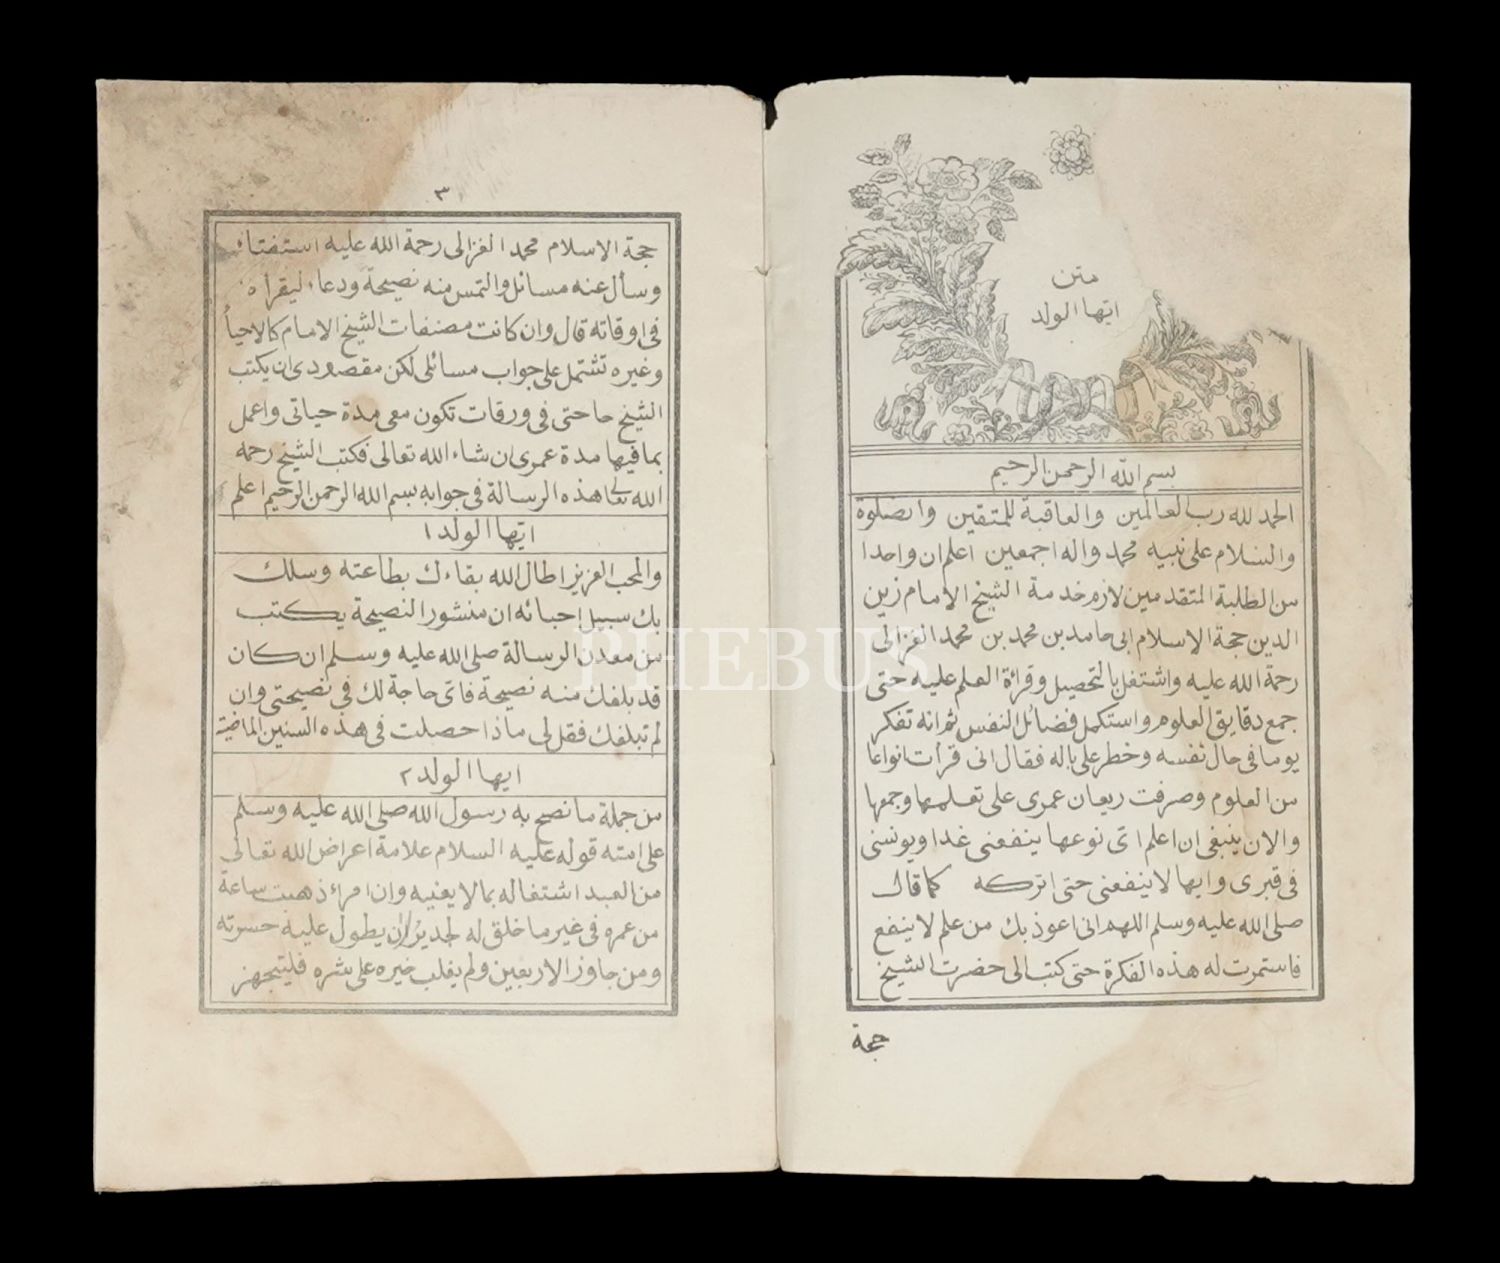 متن
ايها الولد
بسم الله الرحمن الرحيم
الحمد لله رب العالمين والعاقبة للمتقين والصلوة
والسلام على نبيه محمد واله اجمعين اعلم ان واحدا
من الطلبة المتقدمين لازم خدمة الشيخ الامام زين
الدين حجة الاسلام ابى حامد بن محمد بن محمد الغزالى
رحمة الله عليه واشتغل بالتحصيل وقرائة العلم عليه حتى
جمع دقايق العلوم واستكمل فضائل النفس ثم انه تفكر
يوما فى حال نفسه وخطر على باله فقال انى قرأت انواعا
من العلوم وصرفت ريعان عمرى على تعلمها وجمعها
والان ينبغى ان اعلم اى نوعها ينفعنى غدا ويونسنى
فى قبرى وايها لا ينفعنى حتى اتركه كما قال
صلى الله عليه وسلم اللهم انى اعوذ بك من علم لا ينفع
فاستمرت له هذه الفكرة حتى كتب الى حضرت الشيخ
حجة
٣
حجة الاسلام محمد الغزالى رحمة الله عليه استفتاء
وسأل عنه مسائل والتمس منه نصيحة ودعاء ليقرأه
فى اوقاته قال وان كانت مصنفات الشيخ الامام كالاحيأ
وغيره تشتمل على جواب مسائلى لكن مقصودى ان يكتب
الشيخ حاحتى فى ورقات تكون معى مدة حياتى واعمل
بما فيها مدة عمرى ان شاء الله تعالى فكتب الشيخ رحمه
الله تعالى هذه الرسالة فى جوابه بسم الله الرحمن الرحيم اعلم
ايها الولد ١
والمحب العزيز اطال الله بقاءك بطاعته وسلك
بك سبيل احبائه ان منشور النصيحة يكتب
من معدن الرسالة صلى الله عليه وسلم ان كان
قد بلغك منه نصيحة فاى حاجة لك في نصيحتى وان
لم تبلغك فقل لى ماذا حصلت فى هذه السنين الماضية
ايها الولد ٢
من جملة ما نصح به رسول الله صلى الله عليه وسلم
على امته قوله عليه السلام علامة اعراض الله تعالى
من العبد اشتغاله بما لا يعنيه وان امرأ ذهبت ساعة
من عمره فى غير ما خلق له لجدير ان يطول عليه حسرته
ومن جاوز الاربعين ولم يغلب خيره على شره فليتجهز
PHEBUS